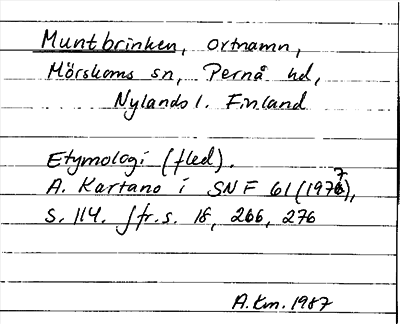 Muntbrinken, ortnamn,
Mörskoms sn, Pernå hd,
Nylands l. Finland
Etymologi (fled).
A. Kartano i SNF 61 (1977),
s. 114. Jfr. s. 18, 266, 276
A.Km. 1987